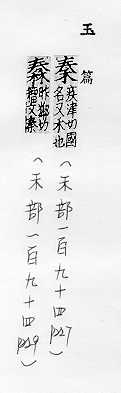 玉篇
秦 疾津切國
名又禾也
(禾部一百九十四 p247)
(禾部一百九十四 p249)